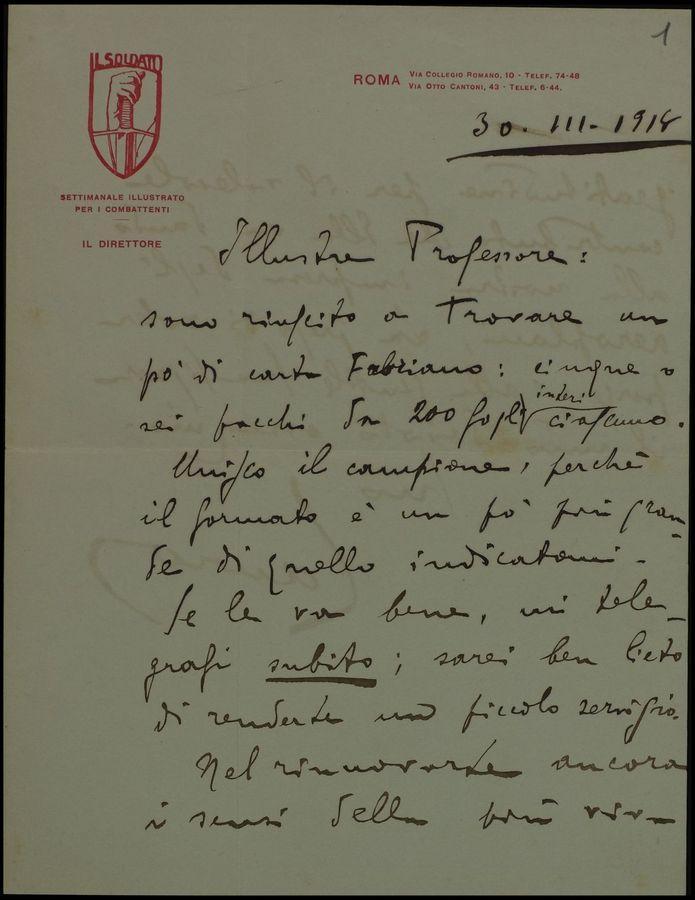 1
IL SOLDATO
ROMA VIA COLLEGIO ROMANO, 10 - TELEF. 74-48
VIA OTTO CANTONI, 43 - TELEF. 6-44.
30. III - 1918
SETTIMANALE ILLUSTRATO
PER I COMBATTENTI
IL DIRETTORE
Illustre Professore:
sono riuscito a trovare un
pò di carta Fabriano: cinque o
sei pacchi da 200 fogli interi ciascuno.
Unisco il campione, perchè
il formato è un pò più gran
de di quello indicatomi.
Se le va bene, mi tele_
grafi subito; sarei ben lieto
di renderle un piccolo servigio.
Nel rinnovarle ancora
i sensi della più viva